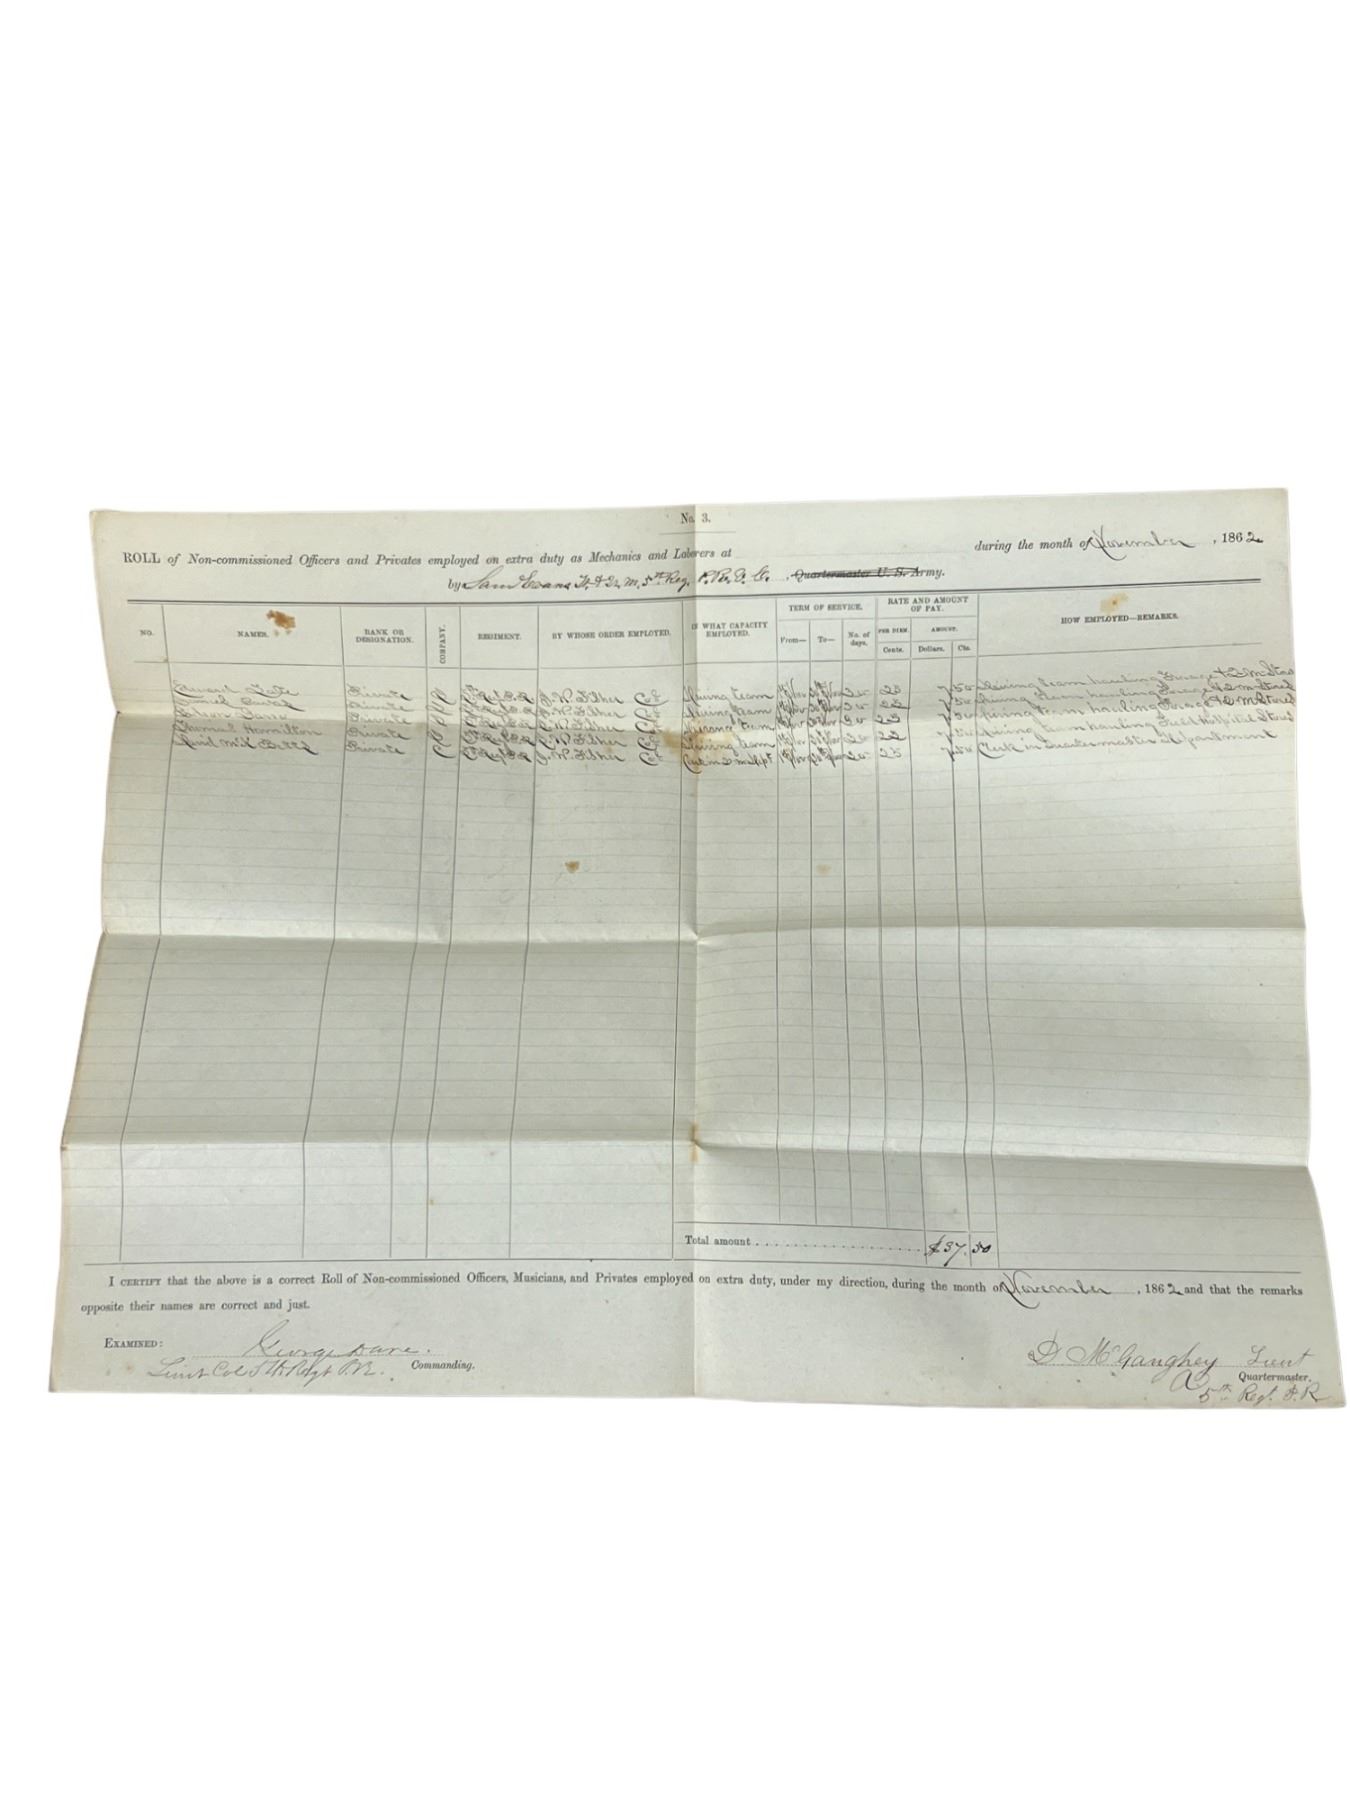 No. 3.
ROLL of Non-commissioned Officers and Privates employed on extra duty as Mechanics and Laborers at during the month of November, 1862
by Saml Evans 5th Reg. P.R.V.C., Quartermaster U. S. Army.
NO. NAMES. RANK OR DESIGNATION. COMPANY. REGIMENT. BY WHOSE ORDER EMPLOYED. IN WHAT CAPACITY EMPLOYED. TERM OF SERVICE. From— To— No. of days. RATE AND AMOUNT OF PAY. PER DIEM. Cents. AMOUNT. Dollars. Cts. HOW EMPLOYED—REMARKS.
Private J. W. Fisher Col Driving team 30 25 7 50 Driving team hauling Forage & Q M Stores
Private J. W. Fisher Col Driving team 30 25 7 50 Driving team hauling Forage & Q M Stores
Private J. W. Fisher Col Driving team 30 25 7 50 Driving team hauling Forage & Q M Stores
Thomas Hamilton Private J. W. Fisher Col Driving team 30 25 7 50 Driving team hauling Hospital Stores
Private C J. W. Fisher Col Clerk in Q m Dept 30 25 7 50 Clerk in Quartermaster Department
Total amount $37. 50
I CERTIFY that the above is a correct Roll of Non-commissioned Officers, Musicians, and Privates employed on extra duty, under my direction, during the month of November, 1862 and that the remarks
opposite their names are correct and just.
EXAMINED: George Dare.
Lieut Col 5th Regt P.R. Commanding.
D McGaughey Lieut
A Quartermaster.
5th Regt. P.R